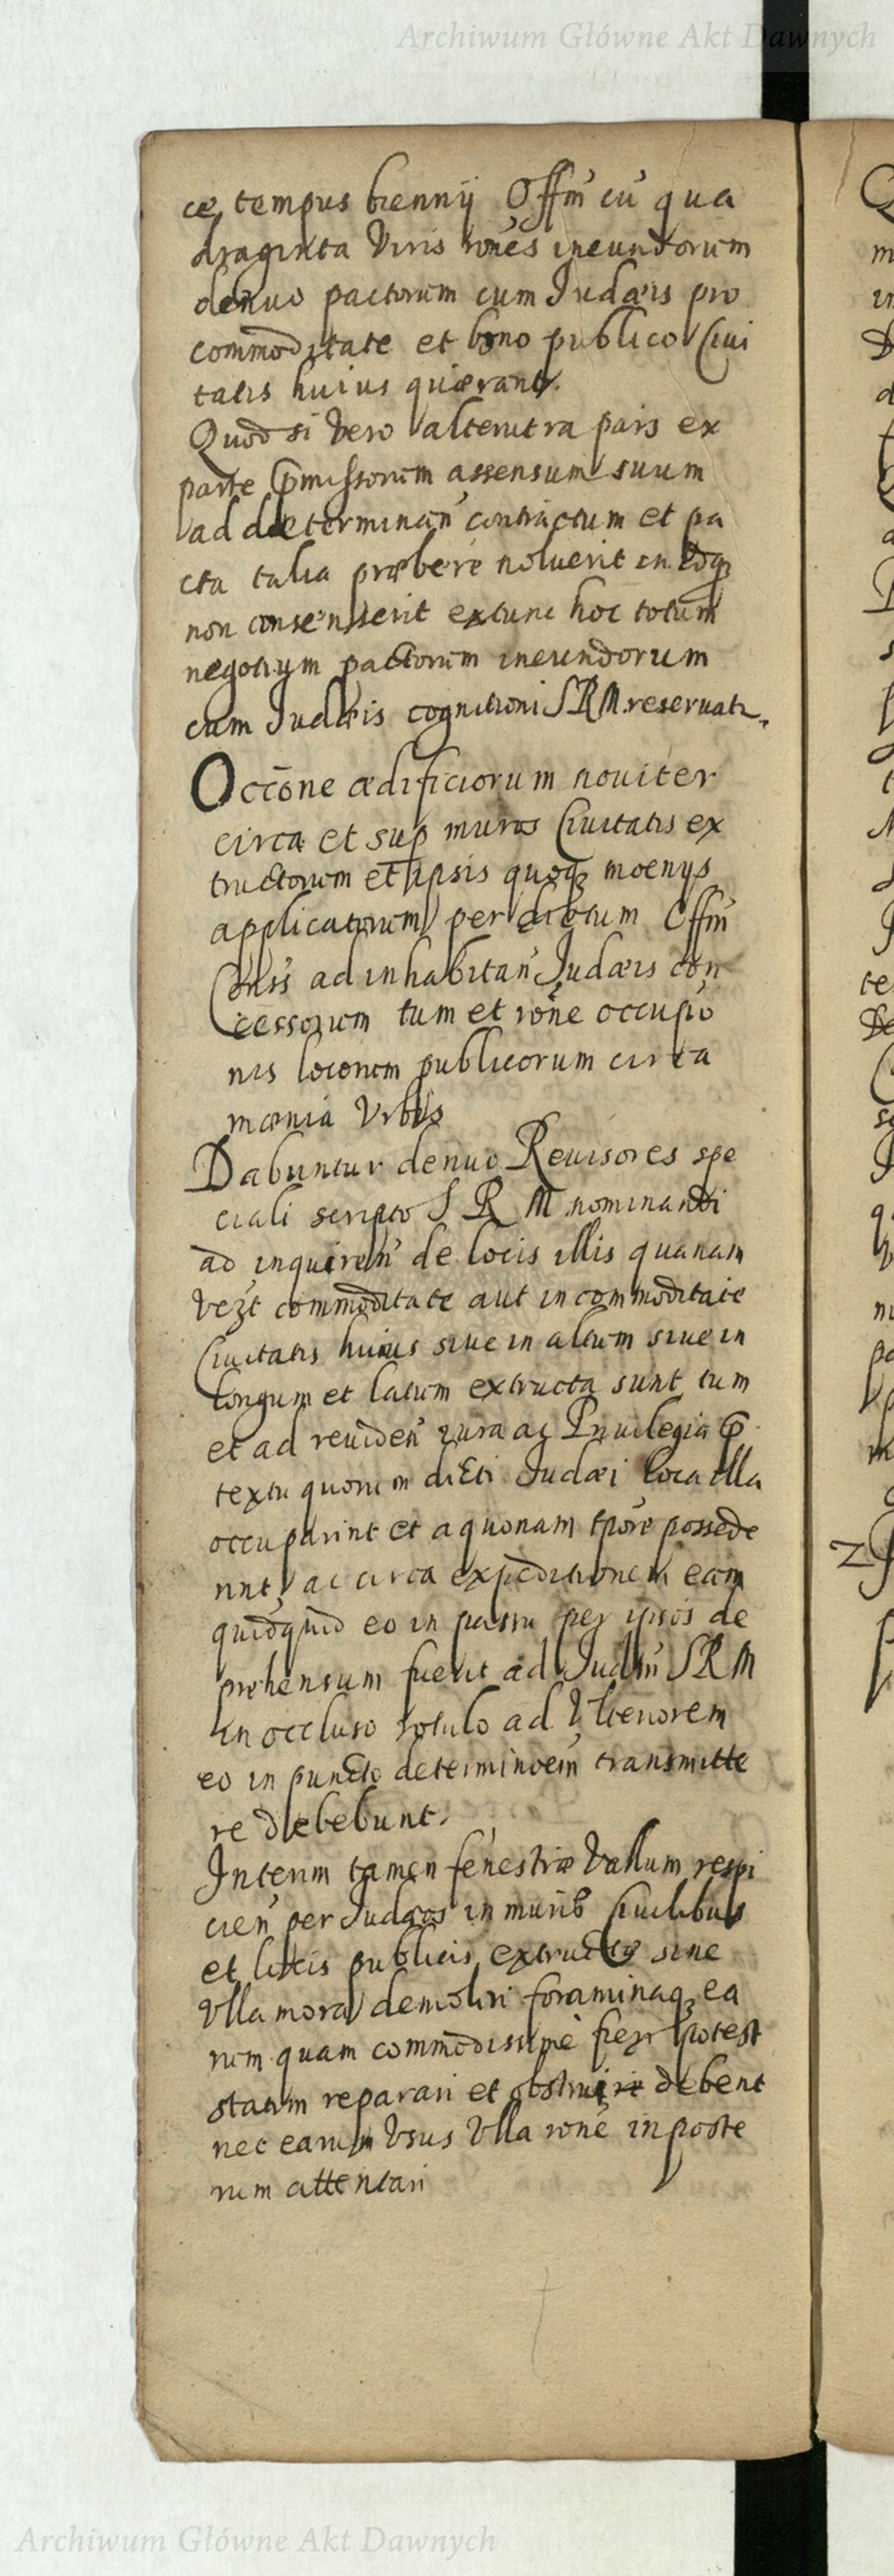 Archiwum Główne Akt Dawnych
ce tempus biennij Offm̄ cū qua
draginta Viris rōnes ineundorum
denuo pactorum cum Judæis pro
commoditate et bono publico Ciui
tatis huius quærant.
Quod si Vero alterutra pars ex
parte p̄missorum assensum suum
ad determinan̄ contractum et pa
cta talia præbere noluerit in eoq
non consenserit extunc hoc totum
negotium pactorum ineundorum
cum Judæis cognitioni S R M reseruatr.
Occōne ædificiorum nouiter
circa et sup muros Ciuitatis ex
tructorum et ipsis quoq moenijs
applicatorum per dictum Offm̄
Conss ad inhabitan̄ Judæis con
cessorum tum et rōne occupō
nis locorum publicorum circa
mænia Vrbis
Dabuntur denuo Reuisores spe
ciali scripto S R M nominandi
ad inquiren̄ de locis illis quanam
vezt commoditate aut incommoditate
Ciuitatis huius siue in altum siue in
longum et latum extructa sunt tum
et ad reuiden̄ iura ac Priuilegia p̄
textu quorum dicti Judæi loca illa
occuparint et a quonam tpōre possede
rint, ac circa expeditionem eam
quidquid eo in passu per ipsos de
prehensum fuerit ad Judm̄ S R M
in occluso rotulo ad Vlteriorem
eo in puncto determinōem transmitte
re debebunt.
Interim tamen fenestræ Vallum respi
cien̄ per Judæos in murib Ciuilibus
et locis publicis extructæ sine
Vlla mora demoliri foraminaq ea
rum quam commodissime fieri potest
statim reparari et obstrui debent
nec earum Vsus Vlla rōne in poste
rum attentari
Archiwum Główne Akt Dawnych